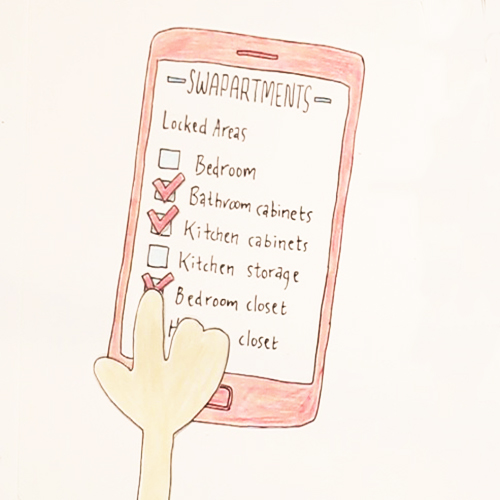 SWAPARTMENTS
Locked Areas
Bedroom
Bathroom cabinets
Kitchen cabinets
Kitchen storage
Bedroom closet
closet